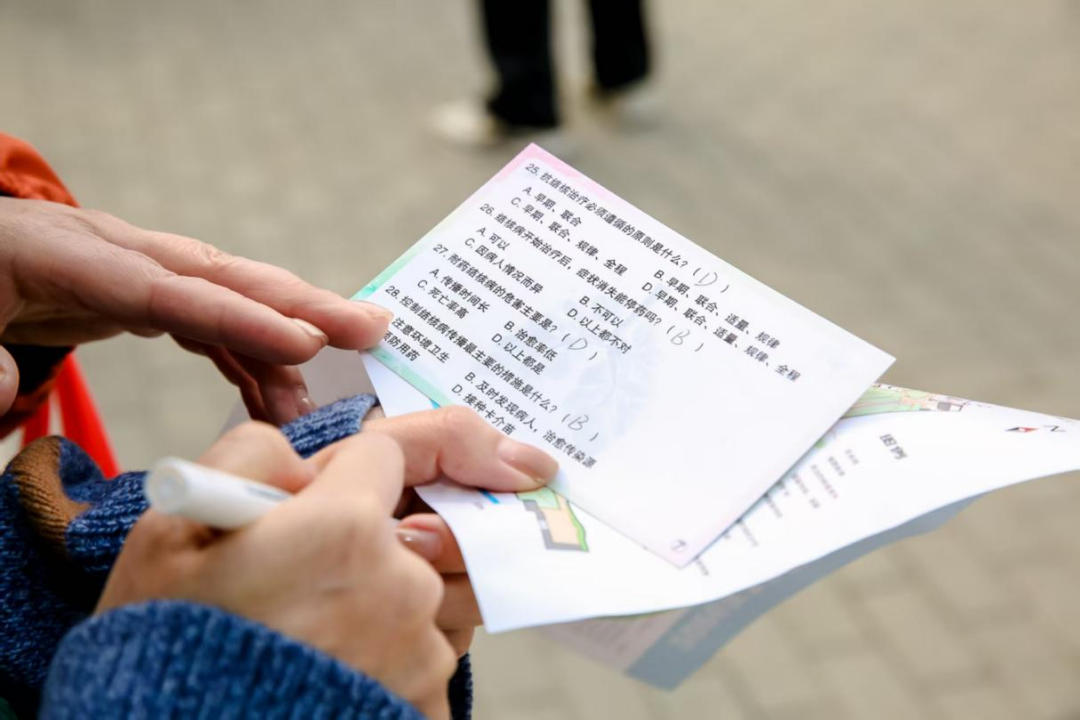 25. 抗结核治疗必须遵循的原则是什么？（D）
A. 早期、联合 B. 早期、联合、适量、规律
C. 早期、联合、规律、全程 D. 早期、联合、适量、规律、全程
26. 结核病开始治疗后，症状消失能停药吗？（B）
A. 可以 B. 不可以
C. 因病人情况而异 D. 以上都不对
27. 耐药结核病的危害主要是？（D）
A. 传播时间长 B. 治愈率低
C. 死亡率高 D. 以上都是
28. 控制结核病传播最主要的措施是什么？（B）
注意环境卫生 B. 及时发现病人，治愈传染源
预防用药 D. 接种卡介苗
7
图例
N